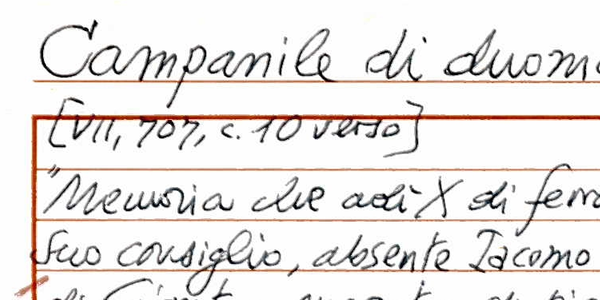 Campanile di duomo
[VII, 707, c. 10 verso]
"Memoria che adì X di
suo consiglio, absente Iacomo
di